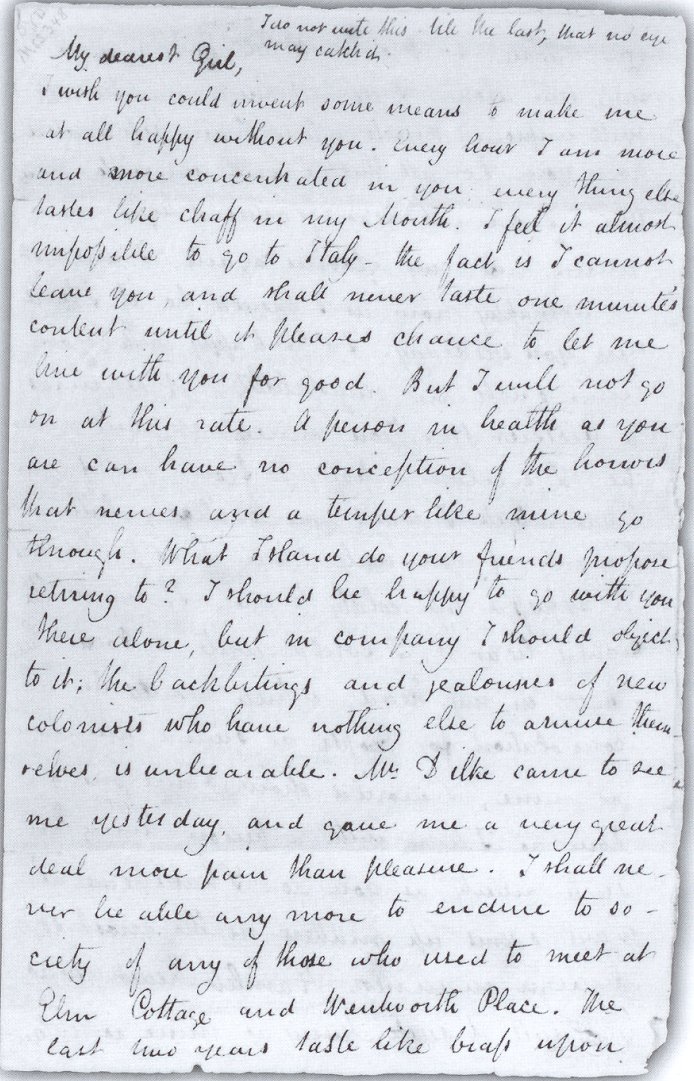 I do not write this till the last, that no eye
may catch it.
My dearest Girl,
I wish you could invent some means to make me
at all happy without you. Every hour I am more
and more concentrated in you; every thing else
tastes like chaff in my Mouth. I feel it almost
impossible to go to Italy - the fact is I cannot
leave you, and shall never taste one minute's
content until it pleases chance to let me
live with you for good. But I will not go
on at this rate. A person in health as you
are can have no conception of the horrors
that nerves and a temper like mine go
through. What Island do your friends propose
retiring to? I should be happy to go with you
there alone, but in company I should object
to it; the backbitings and jealousies of new
colonists who have nothing else to amuse them-
selves, is unbearable. Mr Dilke came to see
me yesterday, and gave me a very great
deal more pain than pleasure. I shall ne-
ver be able any more to endure to so-
ciety of any of those who used to meet at
Elm Cottage and Wentworth Place. The
last two years taste like brass upon